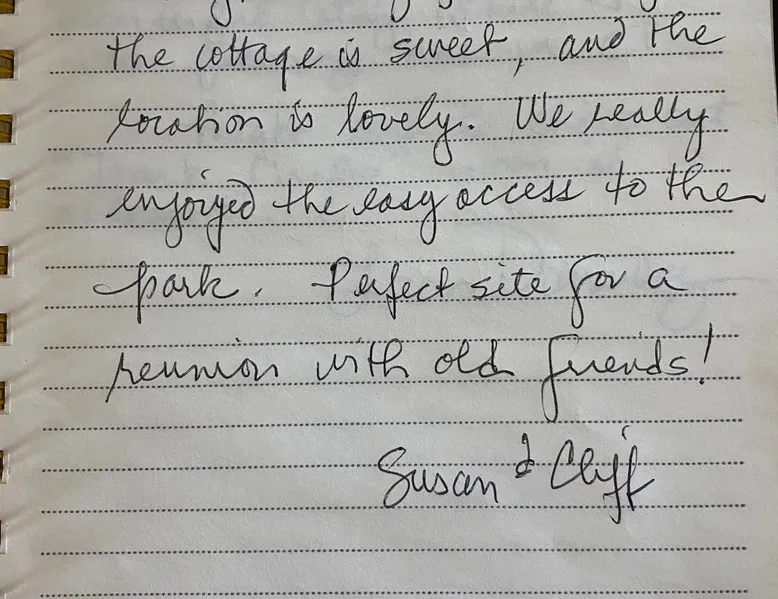 the cottage is sweet, and the
location is lovely. We really
enjoyed the easy access to the
park. Perfect site for a
reunion with old friends!
Susan & Cliff